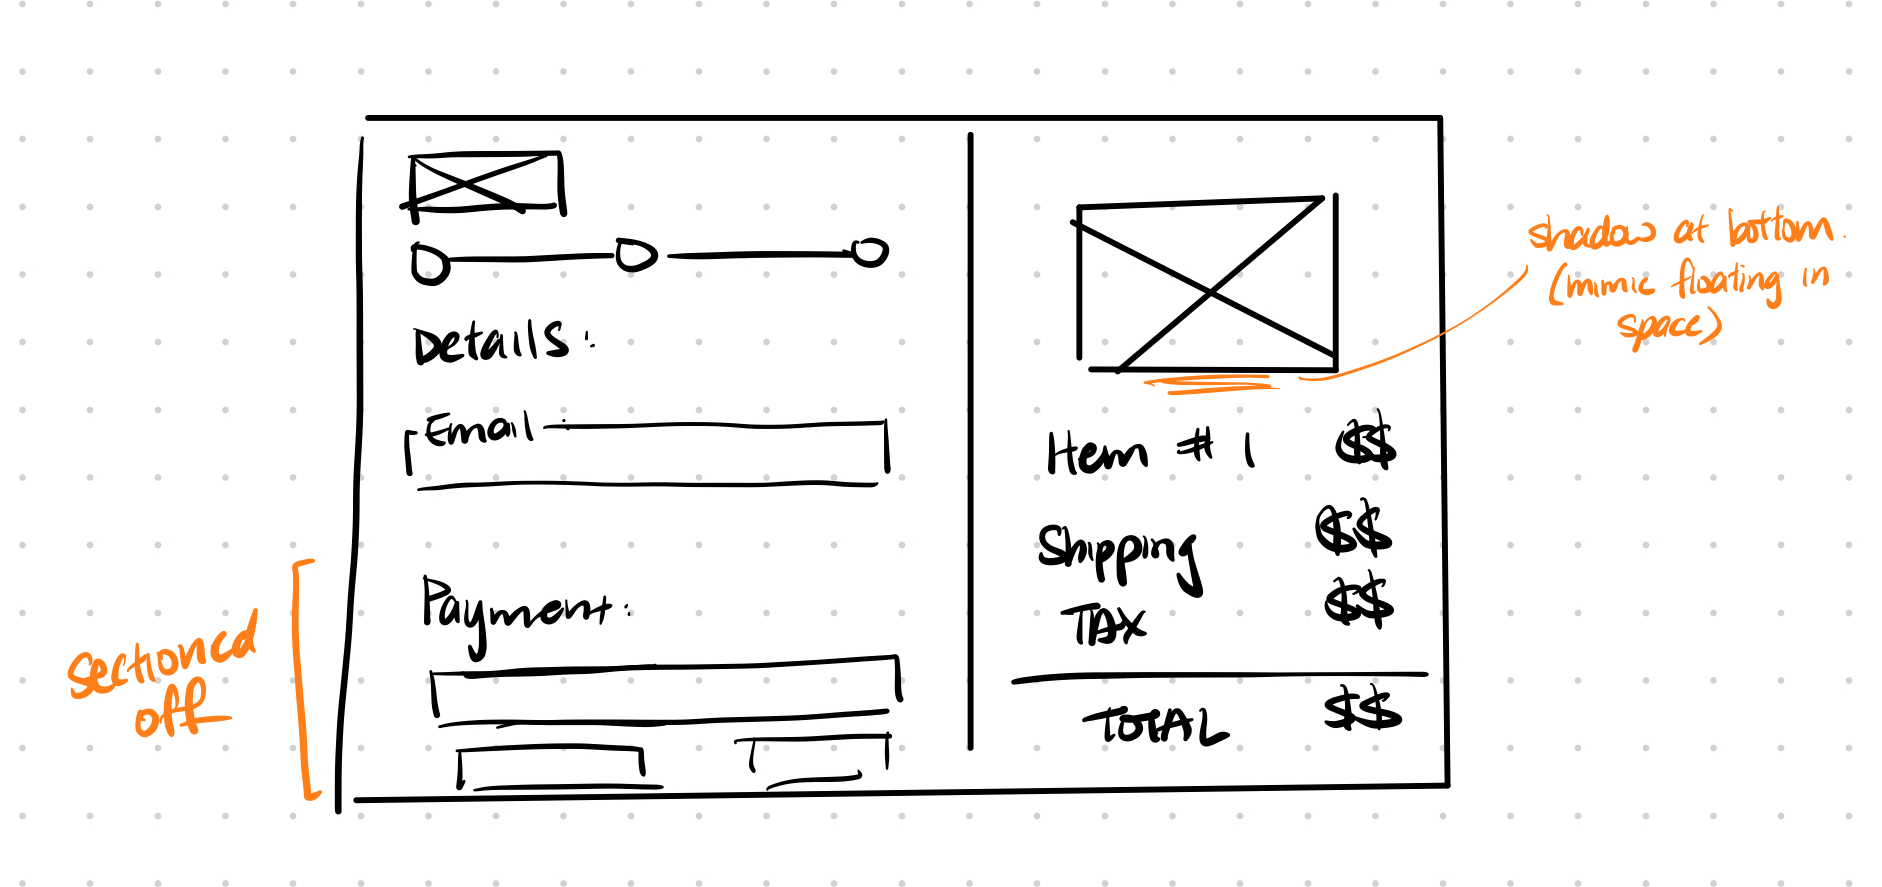 Details:
Email
Payment:
sectioned
off
shadow at bottom.
(mimic floating in
space)
Item # 1 $$
Shipping $$
TAX $$
TOTAL $$